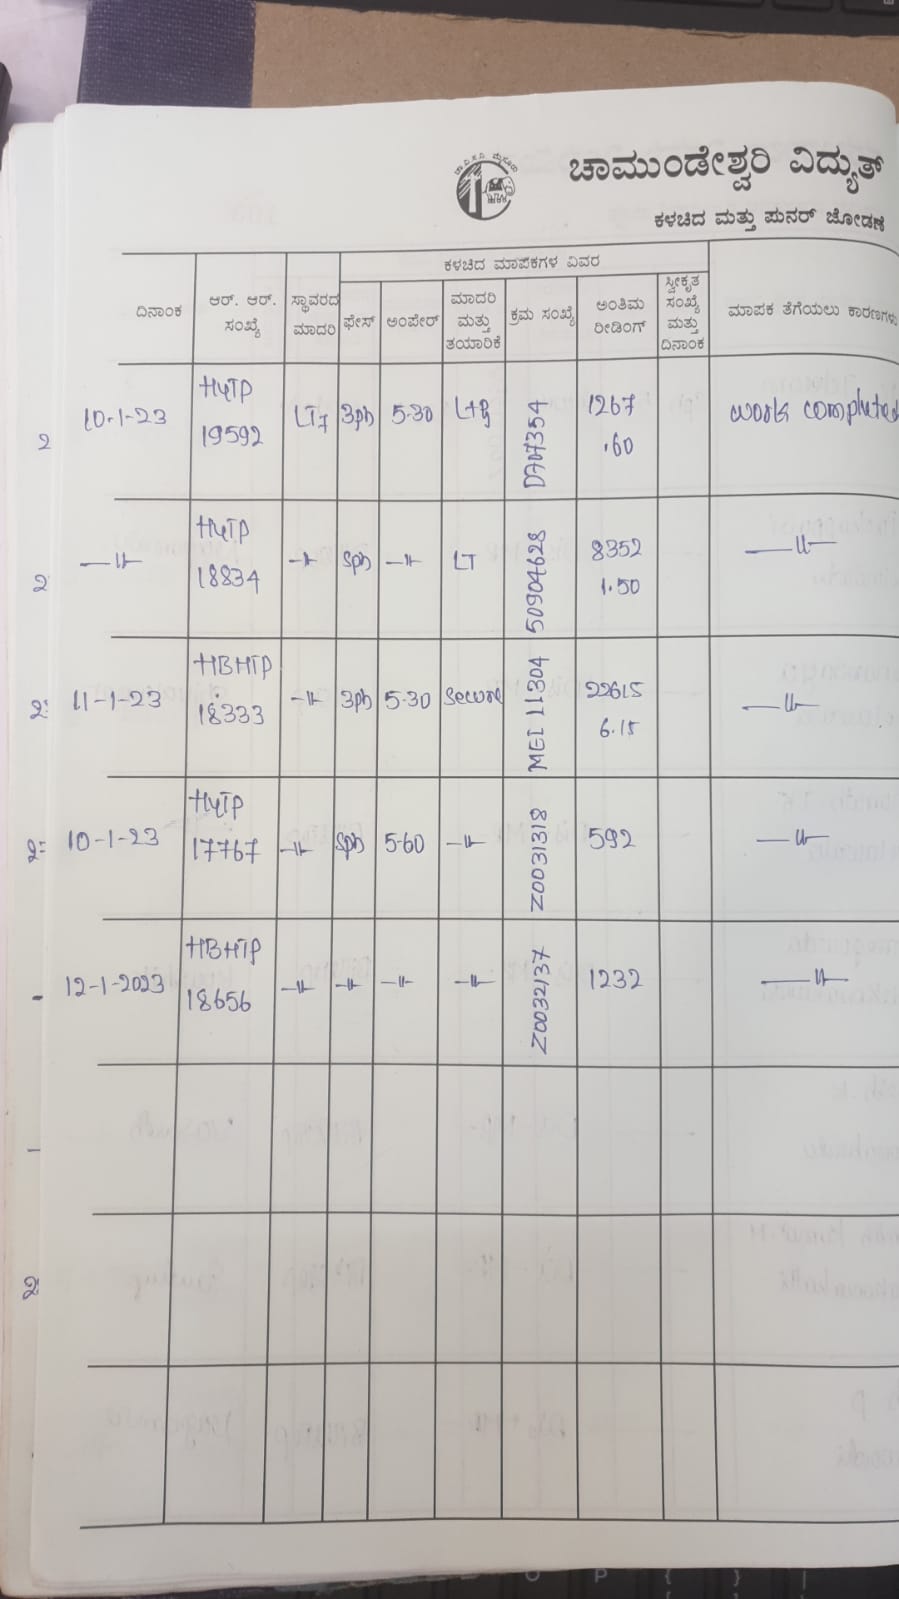 ಚಾಮುಂಡೇಶ್ವರಿ ವಿದ್ಯುತ್
ಕಳಚಿದ ಮತ್ತು ಪುನರ್ ಜೋಡಣೆ
ದಿನಾಂಕ
ಆರ್. ಆರ್. ಸಂಖ್ಯೆ
ಸ್ಥಾವರದ ಮಾದರಿ
ಕಳಚಿದ ಮಾಪಕಗಳ ವಿವರ
ಫೇಸ್
ಅಂಪೇರ್
ಮಾದರಿ ಮತ್ತು ತಯಾರಿಕೆ
ಕ್ರಮ ಸಂಖ್ಯೆ
ಅಂತಿಮ ರೀಡಿಂಗ್
ಸ್ವೀಕೃತ ಸಂಖ್ಯೆ ಮತ್ತು ದಿನಾಂಕ
ಮಾಪಕ ತೆಗೆಯಲು ಕಾರಣಗಳು
10-1-23 HYTP 19592 LT7 3ph 5-30 1267 .60 work completed
—〃— HYTP 18834 —〃— Sph —〃— LT 50904628 8352 1.50 —〃—
11-1-23 HBHTP 18333 —〃— 3ph 5-30 Secure MEL 11304 22615 6.15 —〃—
10-1-23 HYTP 17767 —〃— Sph 5-60 —〃— Z0031318 592 —〃—
12-1-2023 HBHTP 18656 —〃— —〃— —〃— —〃— Z0032137 1232 —〃—